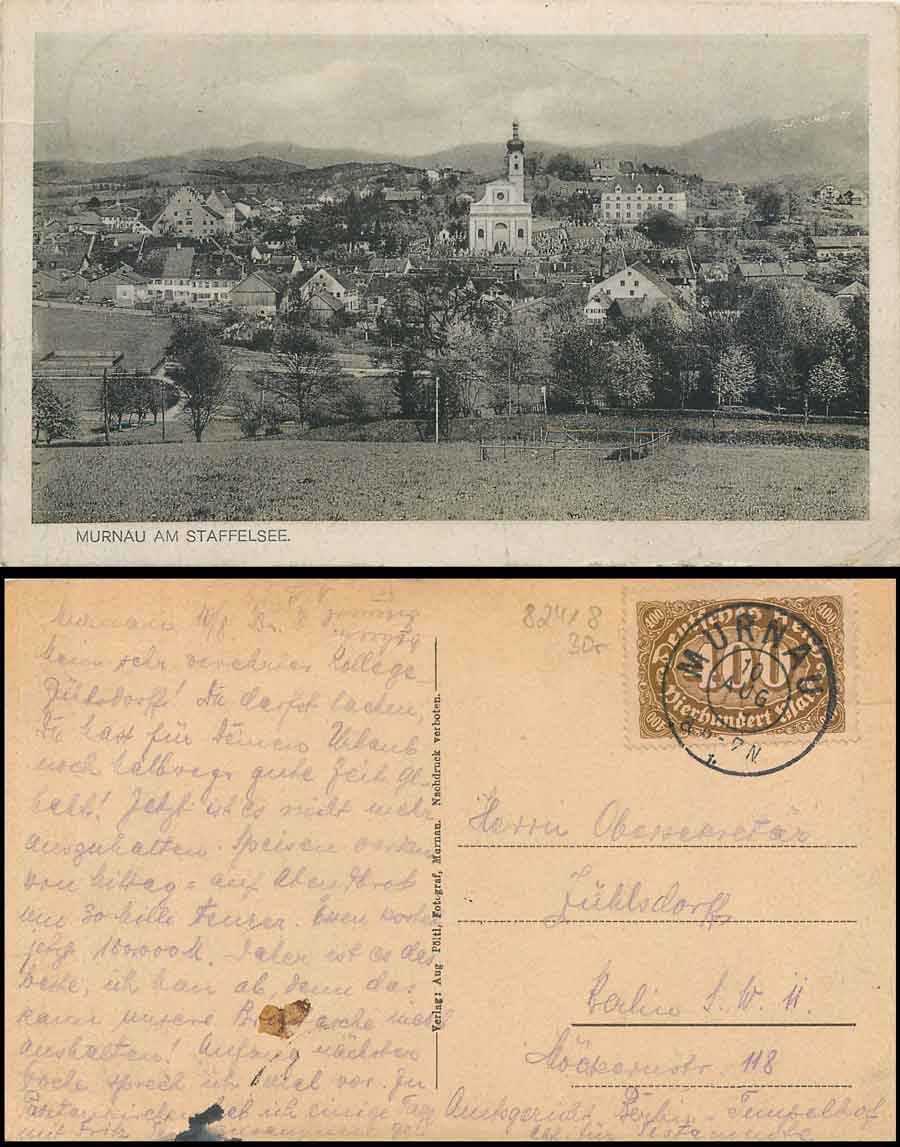 MURNAU AM STAFFELSEE.
Murnau 10/8
Mein sehr verehrter Kollege
Zühlsdorff! Du darfst lachen,
Du hast für Deinen Urlaub
noch halbwegs gute Zeit ge-
habt! Jetzt ist es nicht mehr
auszuhalten. Speisen
von Mittag = auf Abendbrot
um 30 Mille teurer. Essen
jetzt 100000 M. Daher ist es das
beste, ich hau ab denn das
kann unsere nicht
aushalten! Anfang nächster
Woche sprech ich mal vor. In
ich einige Tage
mit Fritz
Verlag: Aug Pöltl, Fotograf, Murnau. Nachdruck verboten.
824/8
30r
400 Deutsches Reich 400
400
400 Vierhundert Mark 400
MURNAU
10
AUG
6-7 N
Herrn Obersekretär
Zühlsdorff
Berlin S.W. 11.
Möckernstr 118
Amtsgericht Berlin-Tempelhof
Abt. für